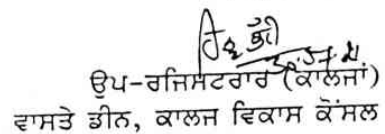 ਉਪ-ਰਜਿਸਟਰਾਰ (ਕਾਲਜਾਂ)
ਵਾਸਤੇ ਡੀਨ, ਕਾਲਜ ਵਿਕਾਸ ਕੌਂਸਲ